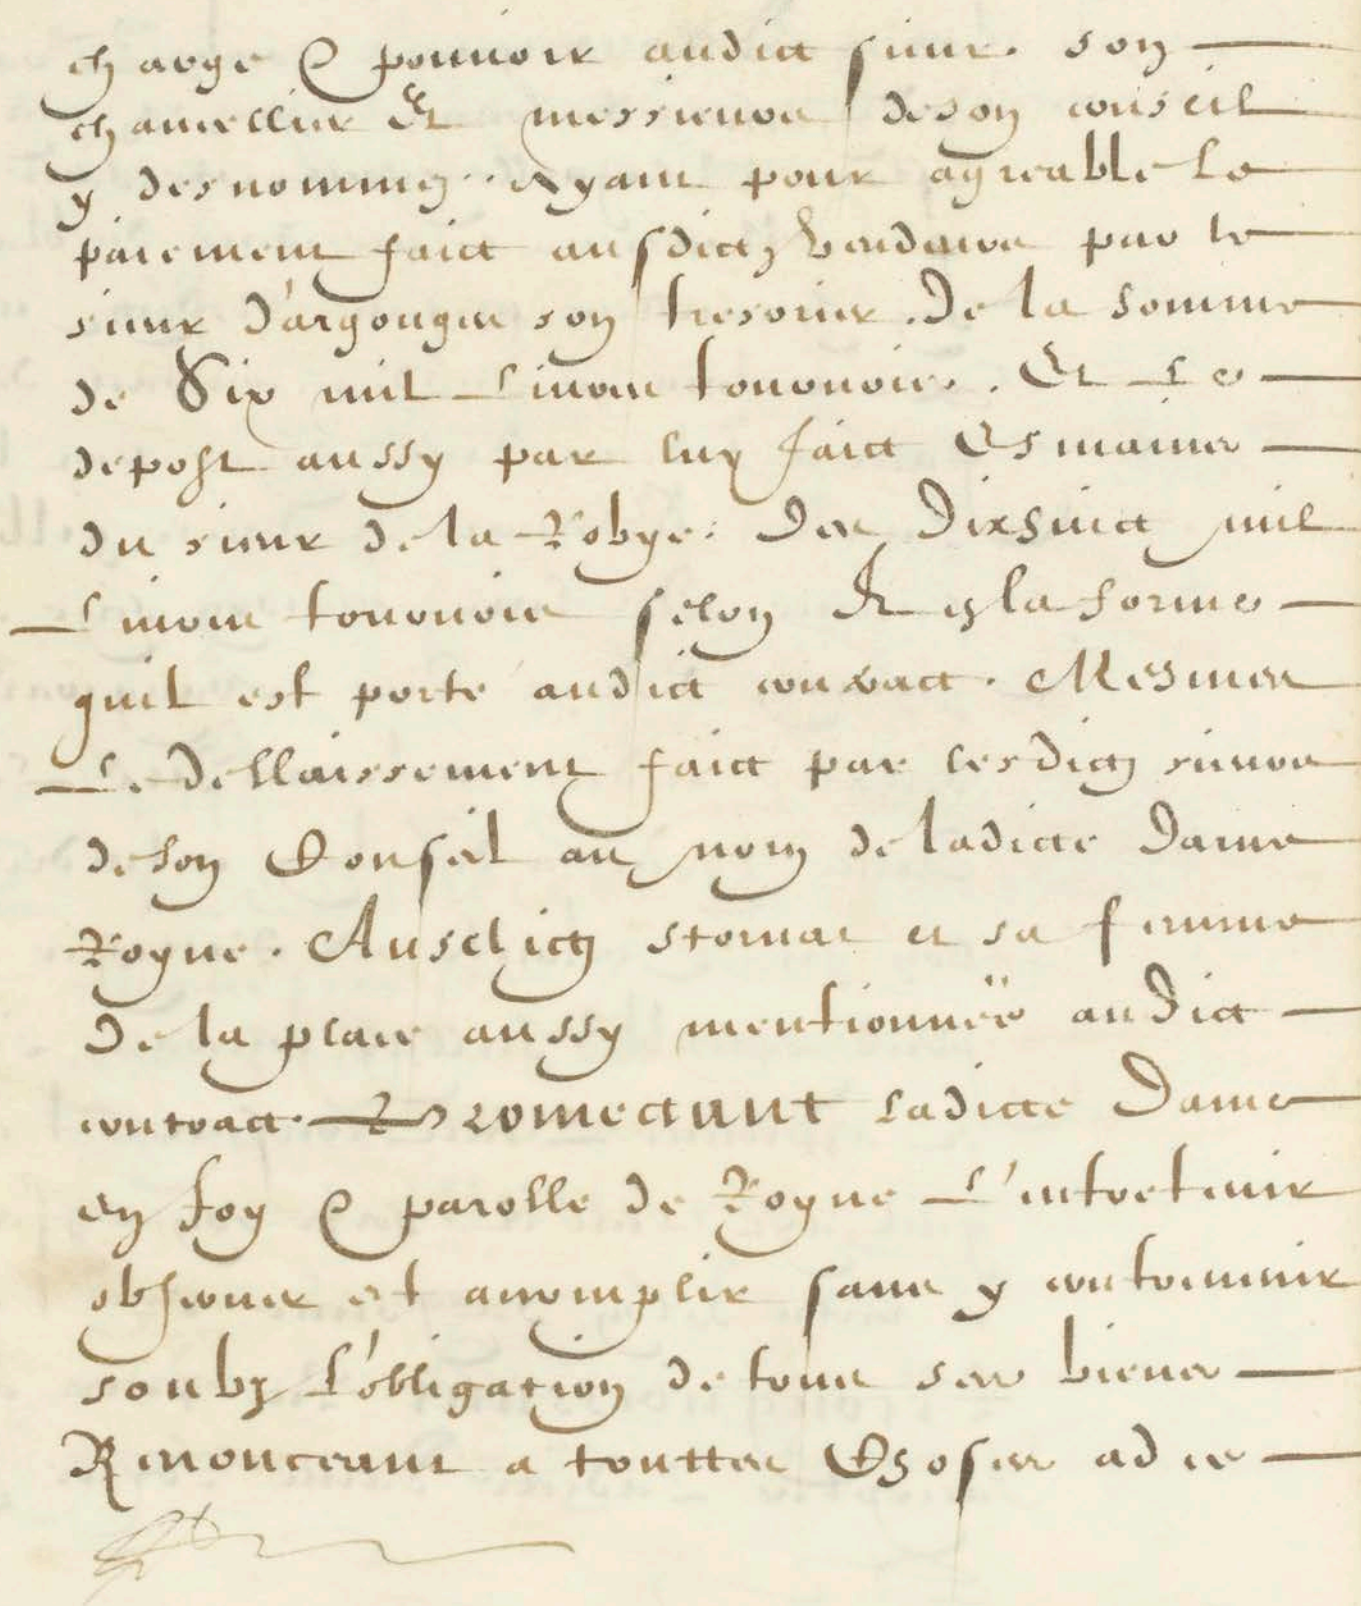 charge & pouvoir audict sieur son
chancellier Et messieurs de son conseil
y desnommez. Ayant pour agreable Le
paiement faict ausdictz vendeurs par le
sieur d'argouges son tresorier. De la somme
de Six mil Livres tournois. Et Le
depost aussy par luy faict Es mains
du sieur de la Robye. Des Dixsept mil
Livres tournois selon Et en la forme
quil est porté audict contract. Mesmes
Le dellaissement faict par lesdictz sieurs
de son Conseil au nom de ladicte Dame
Royne. Ausdictz stornat et sa femme
De la place aussy mentionnëe audict
contract. Promectant Ladicte Dame
en foy & parolle de Royne L'entretenir
observer et accomplir sans y contrevenir
soubz L'obligation de tous ses biens
Renonceant a touttes Choses ad ce